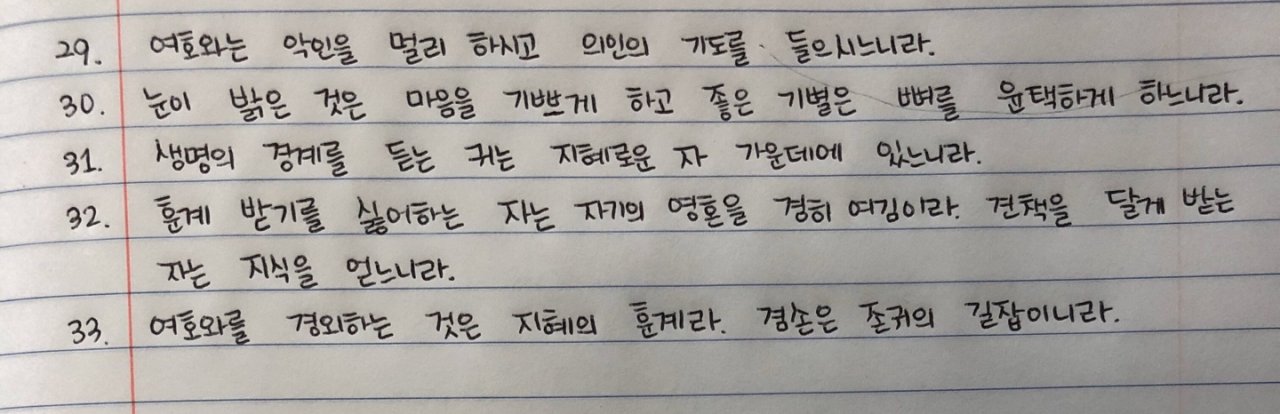 29. 여호와는 악인을 멀리 하시고 의인의 기도를 들으시느니라.
30. 눈이 밝은 것은 마음을 기쁘게 하고 좋은 기별은 뼈를 윤택하게 하느니라.
31. 생명의 경계를 듣는 귀는 지혜로운 자 가운데에 있느니라.
32. 훈계 받기를 싫어하는 자는 자기의 영혼을 경히 여김이라. 견책을 달게 받는
자는 지식을 얻느니라.
33. 여호와를 경외하는 것은 지혜의 훈계라. 겸손은 존귀의 길잡이니라.